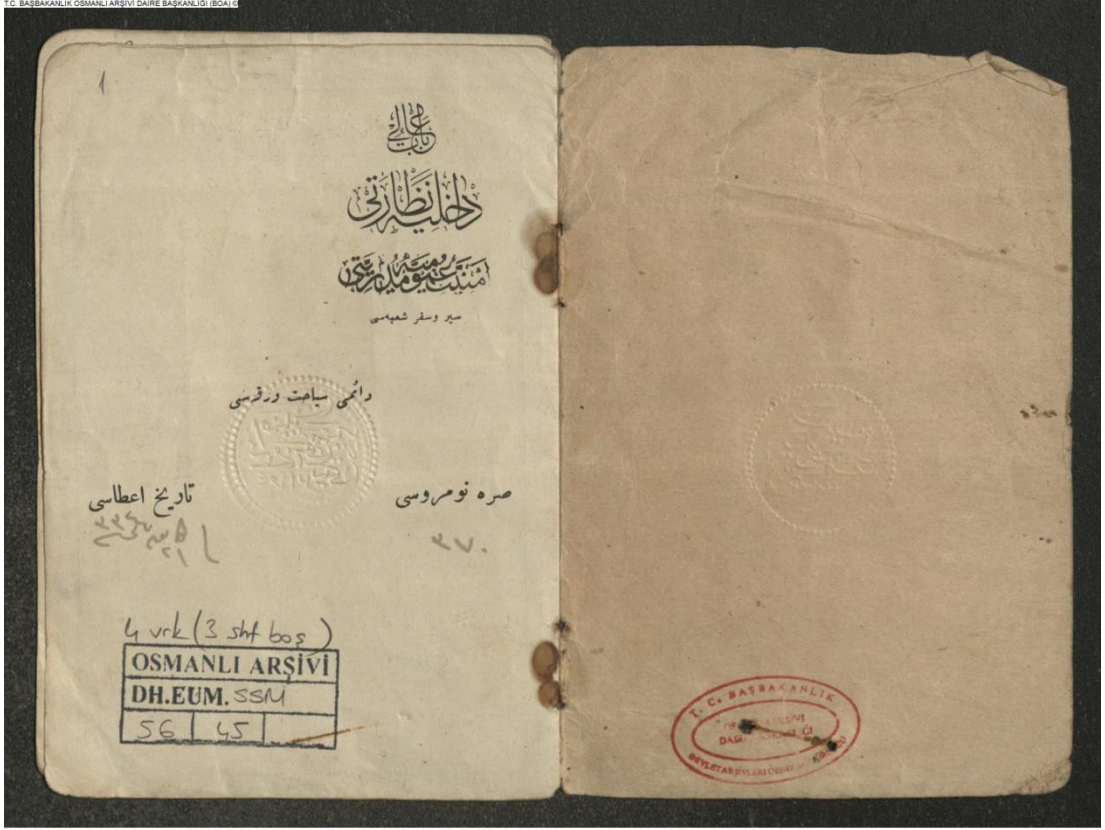 T.C. BAŞBAKANLIK OSMANLI ARŞİVİ DAİRE BAŞKANLIĞI (BOA) ©
1
باب عالی
داخلیه نظارتی
امنیت عمومیه مدیریتی
سیر وسفر شعبه‌سی
دائمی سیاحت ورقه‌سی
صره نومروسی
تاریخ اعطاسی
٣٧٠
4 vrk (3 shf boş)
OSMANLI ARŞİVİ
DH.EUM. SSM
56 45
T. C. BAŞBAKANLIK